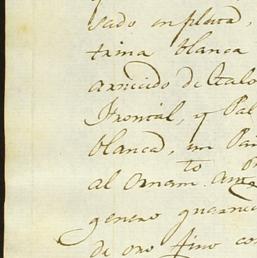 sado en plata,
trina blanca
arnicido de Galo
Frontal, y Pal
blanca, un Pañ
al Ornam.to
genero guarnec
de oro fino con